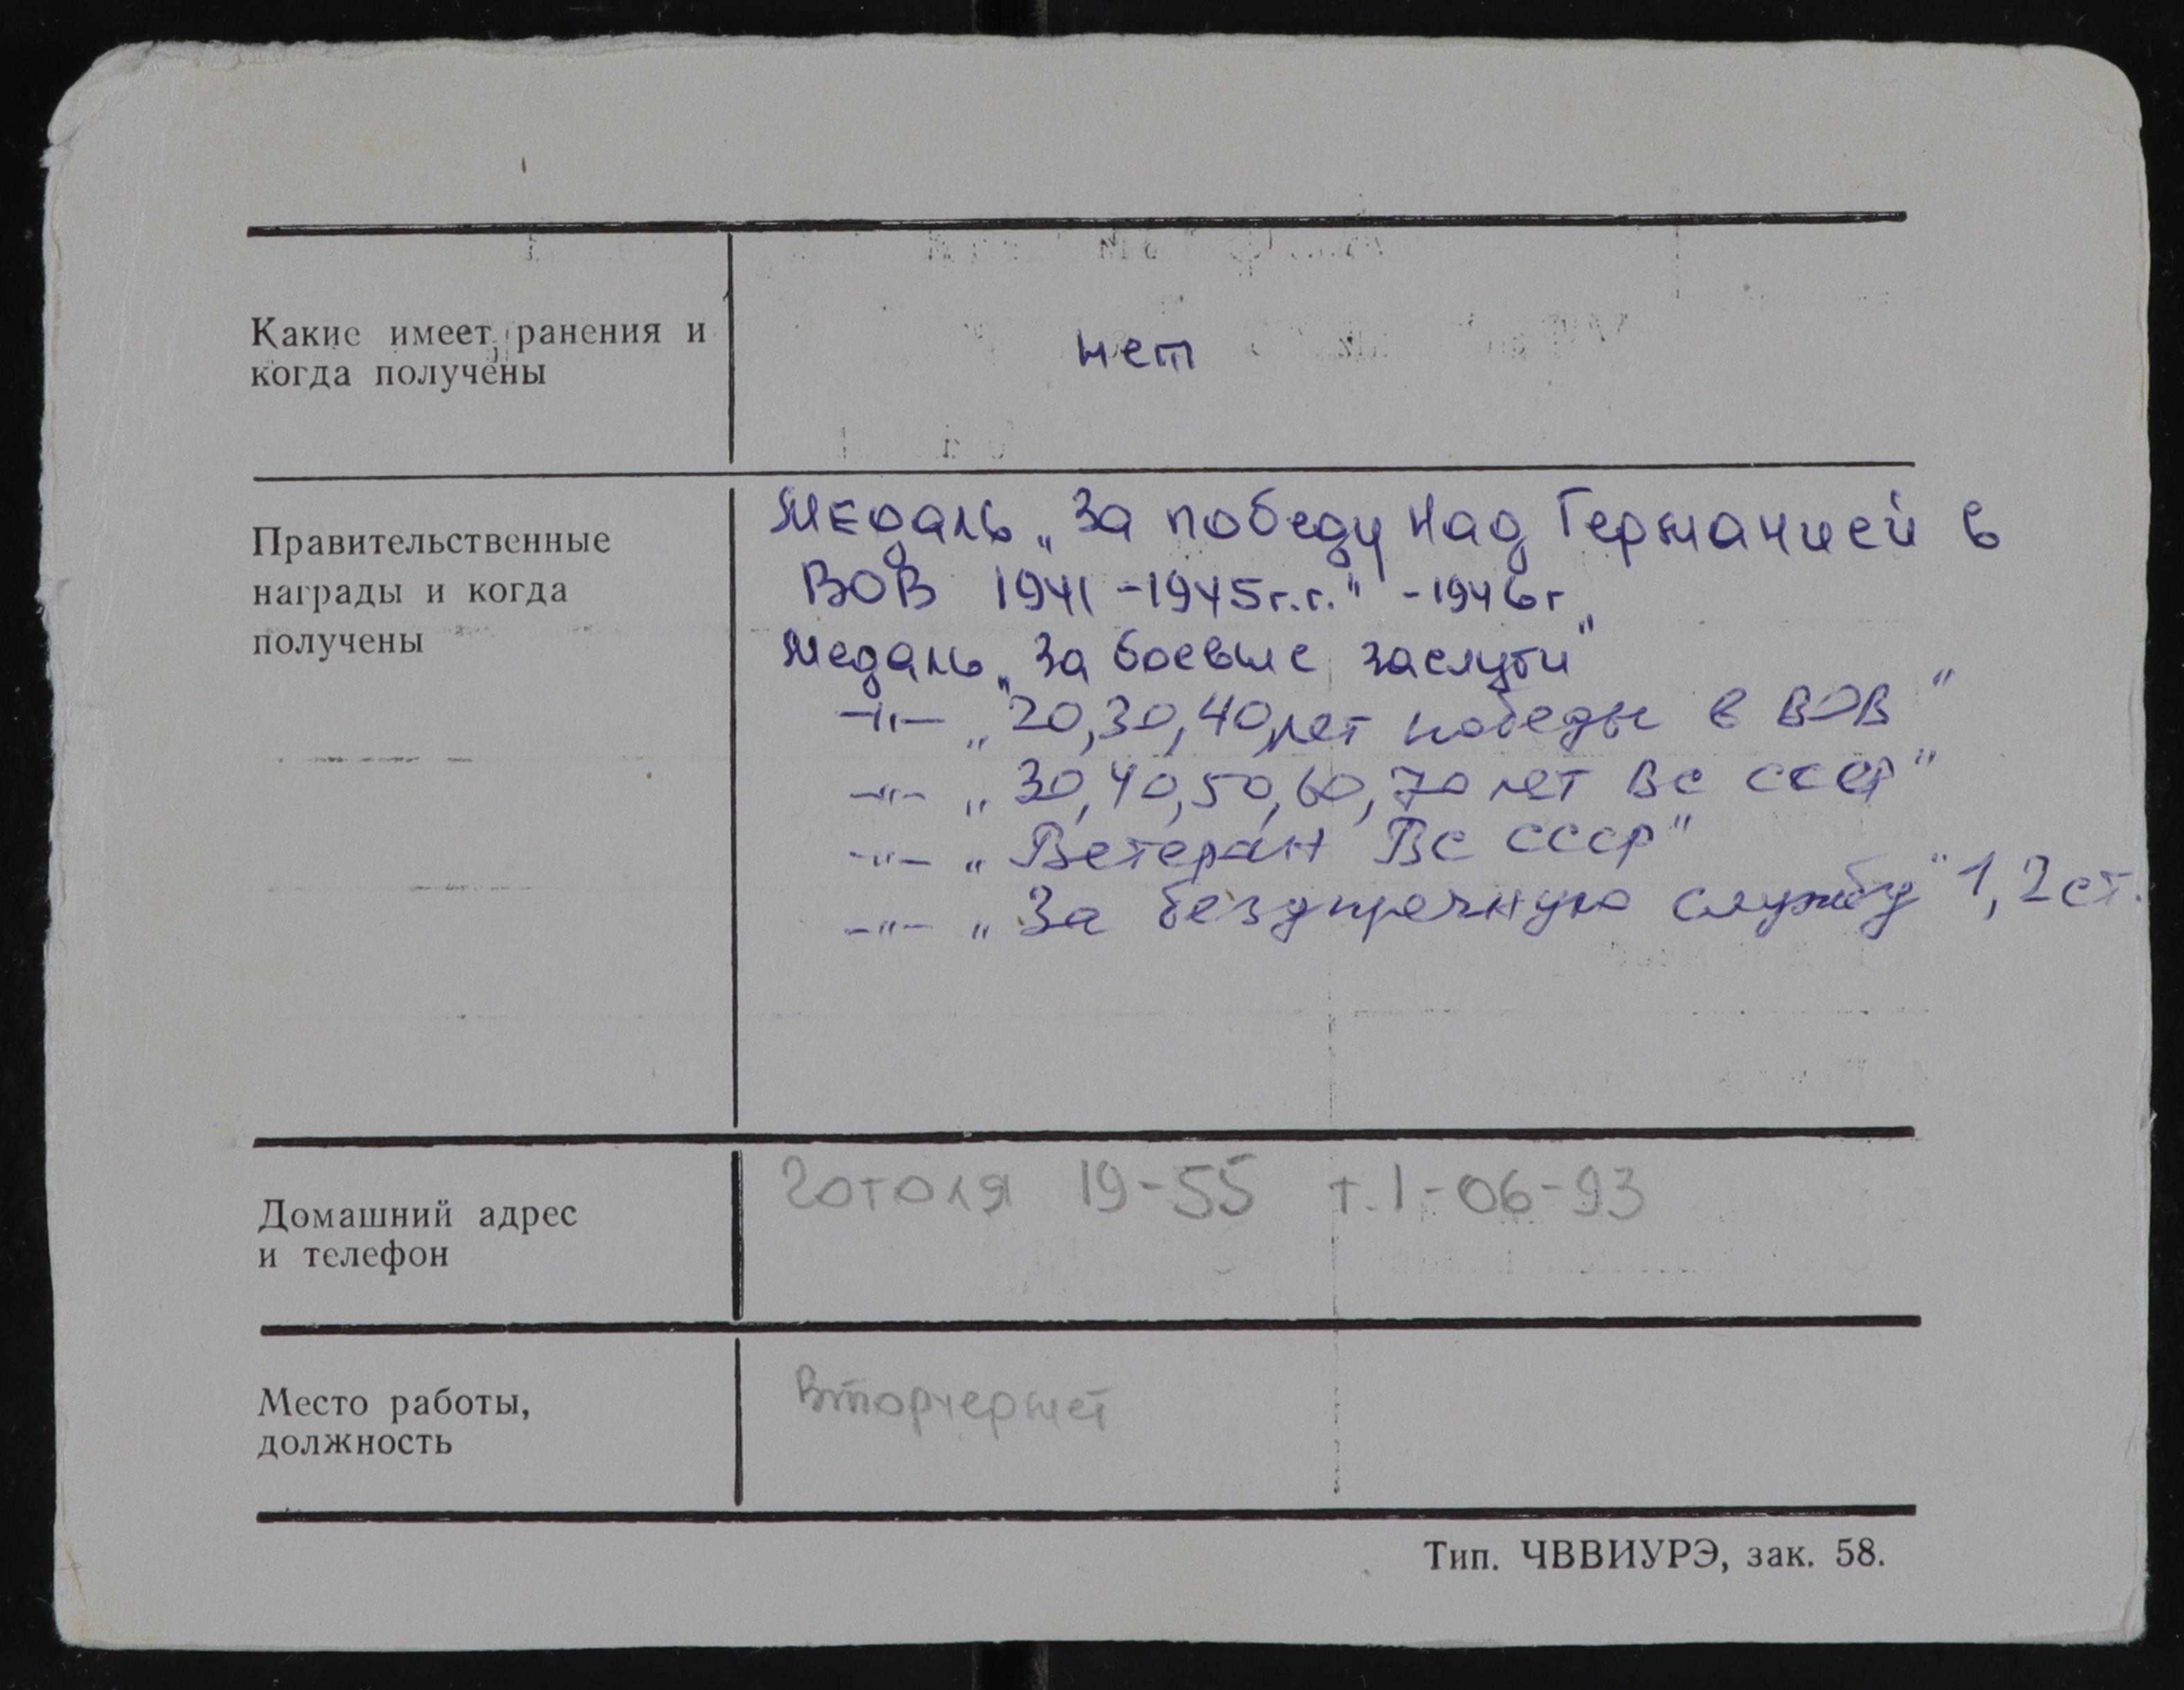 Какие имеет ранения и
когда получены
нет
Правительственные
награды и когда
получены
Медаль „За победу над Германией в
ВОВ 1941-1945г.г." -1946г
Медаль „За боевые заслуги"
-"- „20,30,40 лет победы в ВОВ"
-"- „30,40,50,60,70 лет ВС СССР"
-"- „Ветеран ВС СССР"
-"- „За безупречную службу" 1,2 ст.
Домашний адрес
и телефон
Гоголя 19-55 т.1-06-93
Место работы,
должность
Вторчермет
Тип. ЧВВИУРЭ, зак. 58.